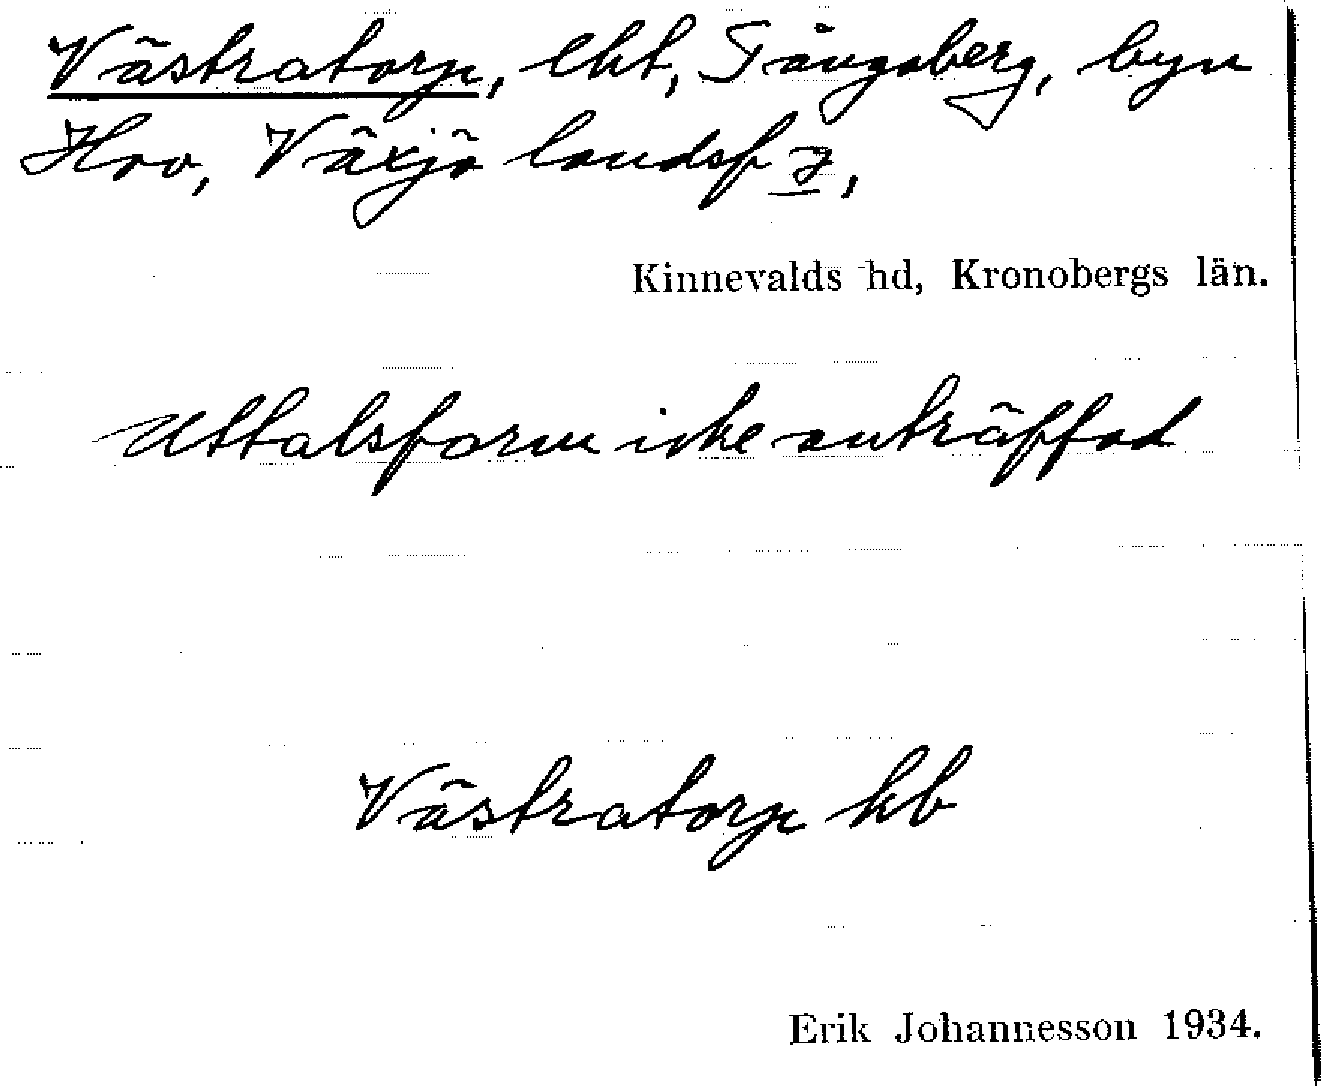 Västratorp, lht, Tångaberg, byn
Hov, Växjö landsf z,
Kinnevalds hd, Kronobergs län.
Uttalsform icke anträffad
Västratorp kb
Erik Johannesson 1934.